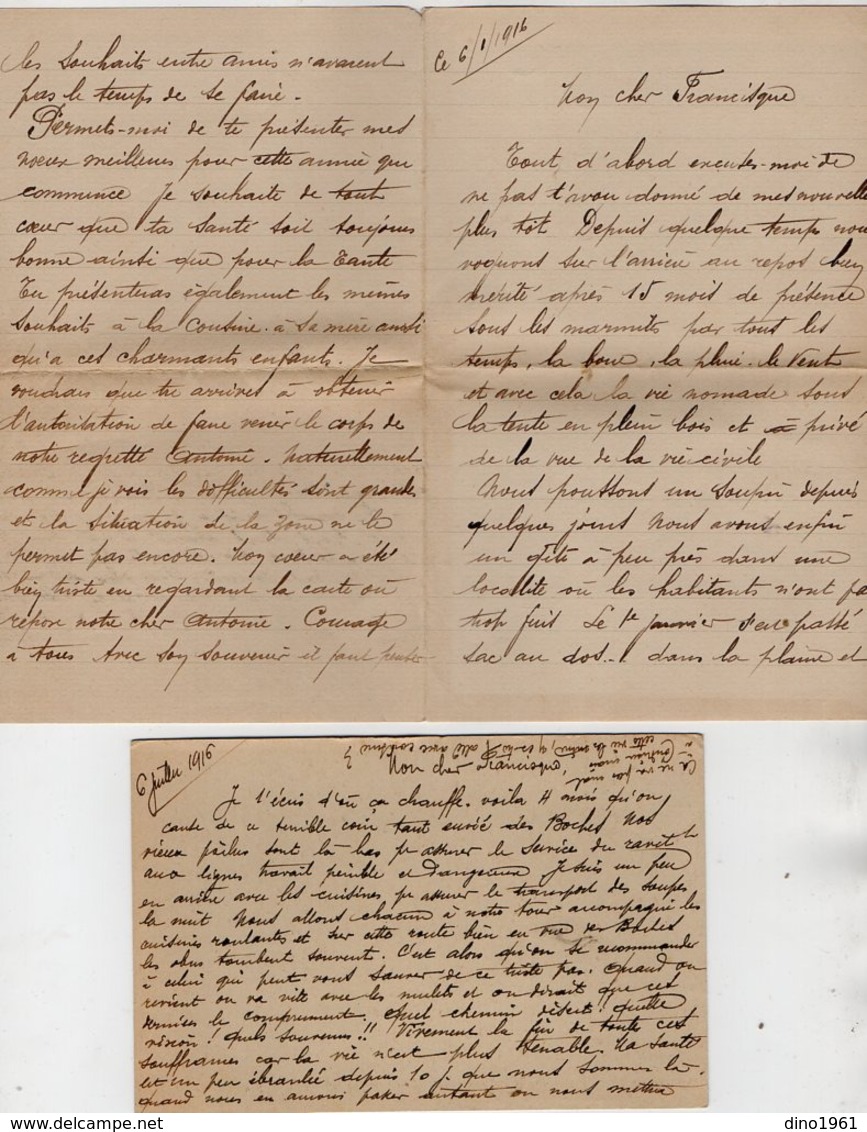 Ce 6/1/1916
Mon cher Francisque
Tout, d'abord excuses-moi de
ne pas t'avoir donné de mes nouvelle
plus tôt Depuis quelque temps nou
voquons sur l'arrière au repos bien
mérité après 15 mois de présence
sous les marmites par tout les
temps, la boue, la pluie, le Vent
et avec cela la vie nomade sous
la tente en plein bois et privé
de la vue de la vie civile
Nous poussons un soupir depuis
quelques jours Nous avons enfin
un gîte à peu près dans une
localité où les habitants n'ont pa
trop fuit Le 1e janvier s'est passé
sac au dos... dans la plaine et
les souhaits entre amis n'avaient
pas le temps de se faire.
Permets-moi de te présenter mes
voeux meilleurs pour cette année qui
commence Je souhaite de tout
coeur que ta santé soit toujours
bonne ainsi que pour la Tante
Tu présenteras également les mêmes
souhaits à la Cousine. à sa mère aussi
qu'a ces charmants enfants. Je
voudrais que tu arrives à obtenir
l'autorisation de faire venir le corps de
notre regretté Antoine. Naturellement
comme je vois les difficultés sont grandes
et la situation de la zone ne le
permet pas encore. Mon coeur a été
bien triste en regardant la carte où
repose notre cher Antoine. Courage
à tous Avec son souvenir il faut penser
6 juillet 1916
Mon cher Francisque,
Je t'écris d'où ça chauffe. voila 4 mois qu'on
cause de ce terrible coin tant envié des Boches Nos
vieux poilus sont là bas pr assurer le service du ravitt
aux lignes travail pénible et dangereux Je suis un peu
en arrière avec les cuisines pr assurer le transport des soupes
la nuit Nous allons chacun à notre tour accompagner les
cuisines roulantes et sur cette route bien en vue des Boches
les obus tombent souvent. C'est alors qu'on se recommander
à celui qui peut vous sauver de ce triste pas. Quand on
revient on va vite avec les mulets et on dirait que ces
derniers le comprennent. Quel chemin désert! quelle
vision! Quels souvenirs!! Vivement la fin de toute ces
souffrances car la vie n'est plus tenable. Ma santé
est un peu ébranlée depuis 10 j. que nous sommes là.
quand nous en aurons passer autant on nous mettra